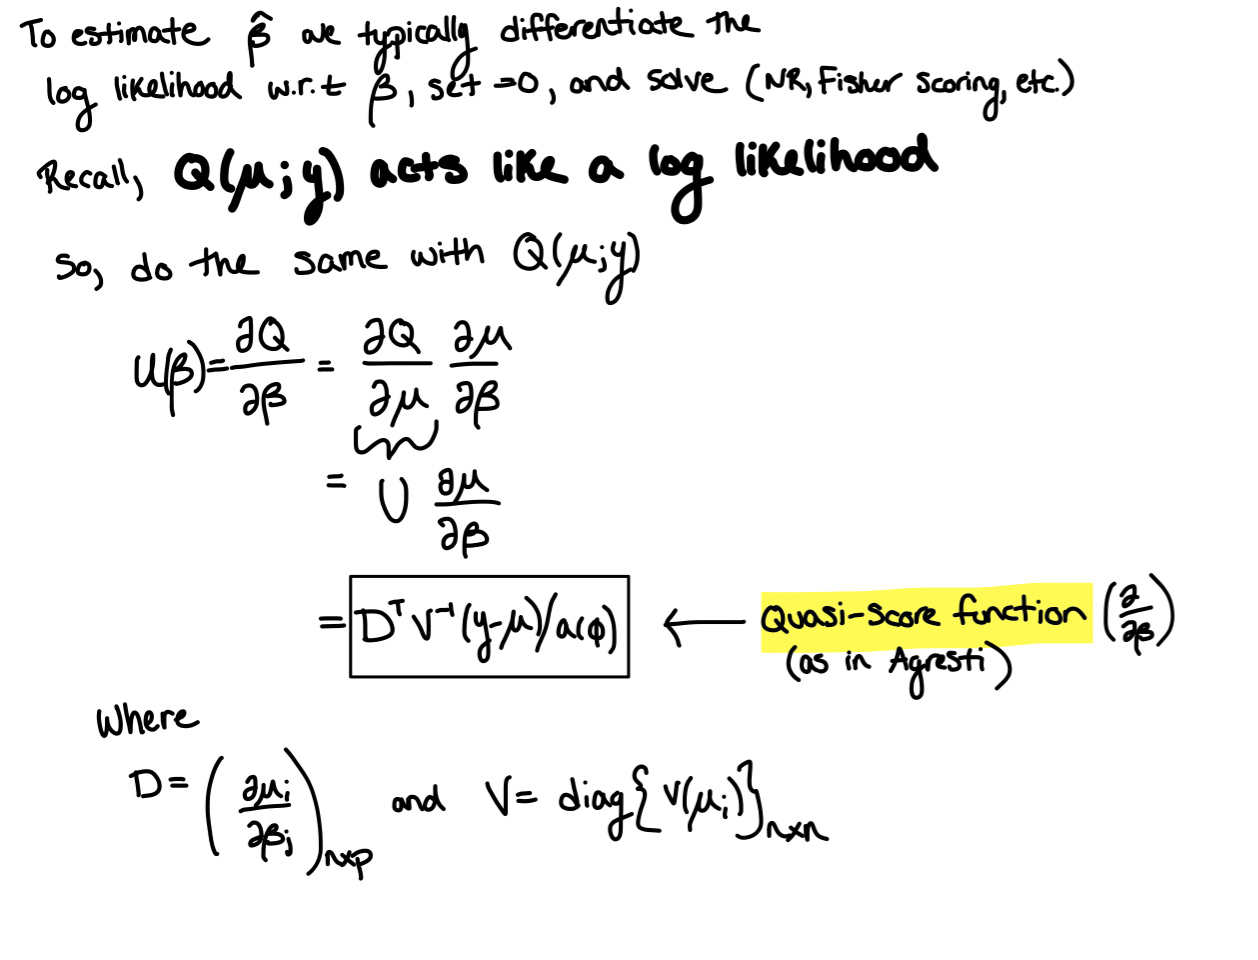 To estimate β̂ we typically differentiate the
log likelihood w.r.t β, set =0, and solve (NR, Fisher Scoring, etc.)
Recall, Q(μ;y) acts like a log likelihood
So, do the same with Q(μ;y)
U(β) = ∂Q/∂β = ∂Q/∂μ ∂μ/∂β
= U ∂μ/∂β
= DᵀV⁻¹(y-μ)/a(φ) ← Quasi-Score function (∂/∂β)
(as in Agresti)
Where
D = (∂μᵢ/∂βⱼ)n×p and V = diag{v(μᵢ)}n×n